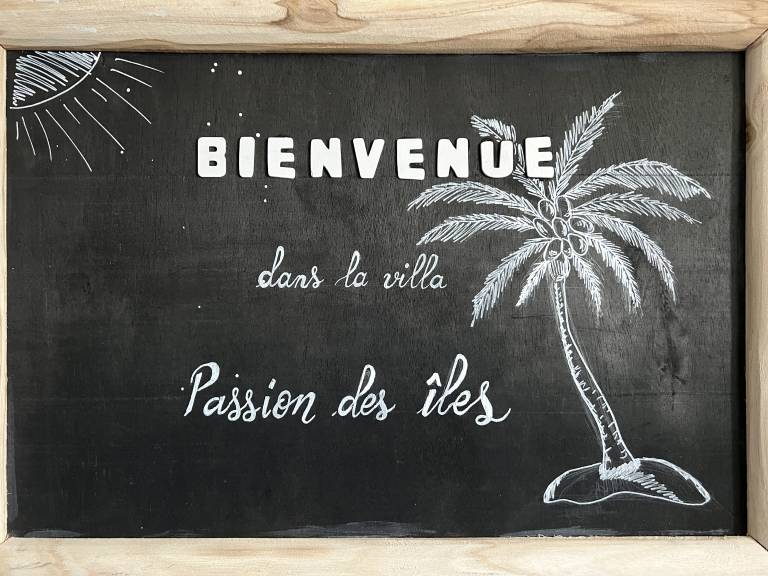 BIENVENUE
dans la villa
Passion des îles